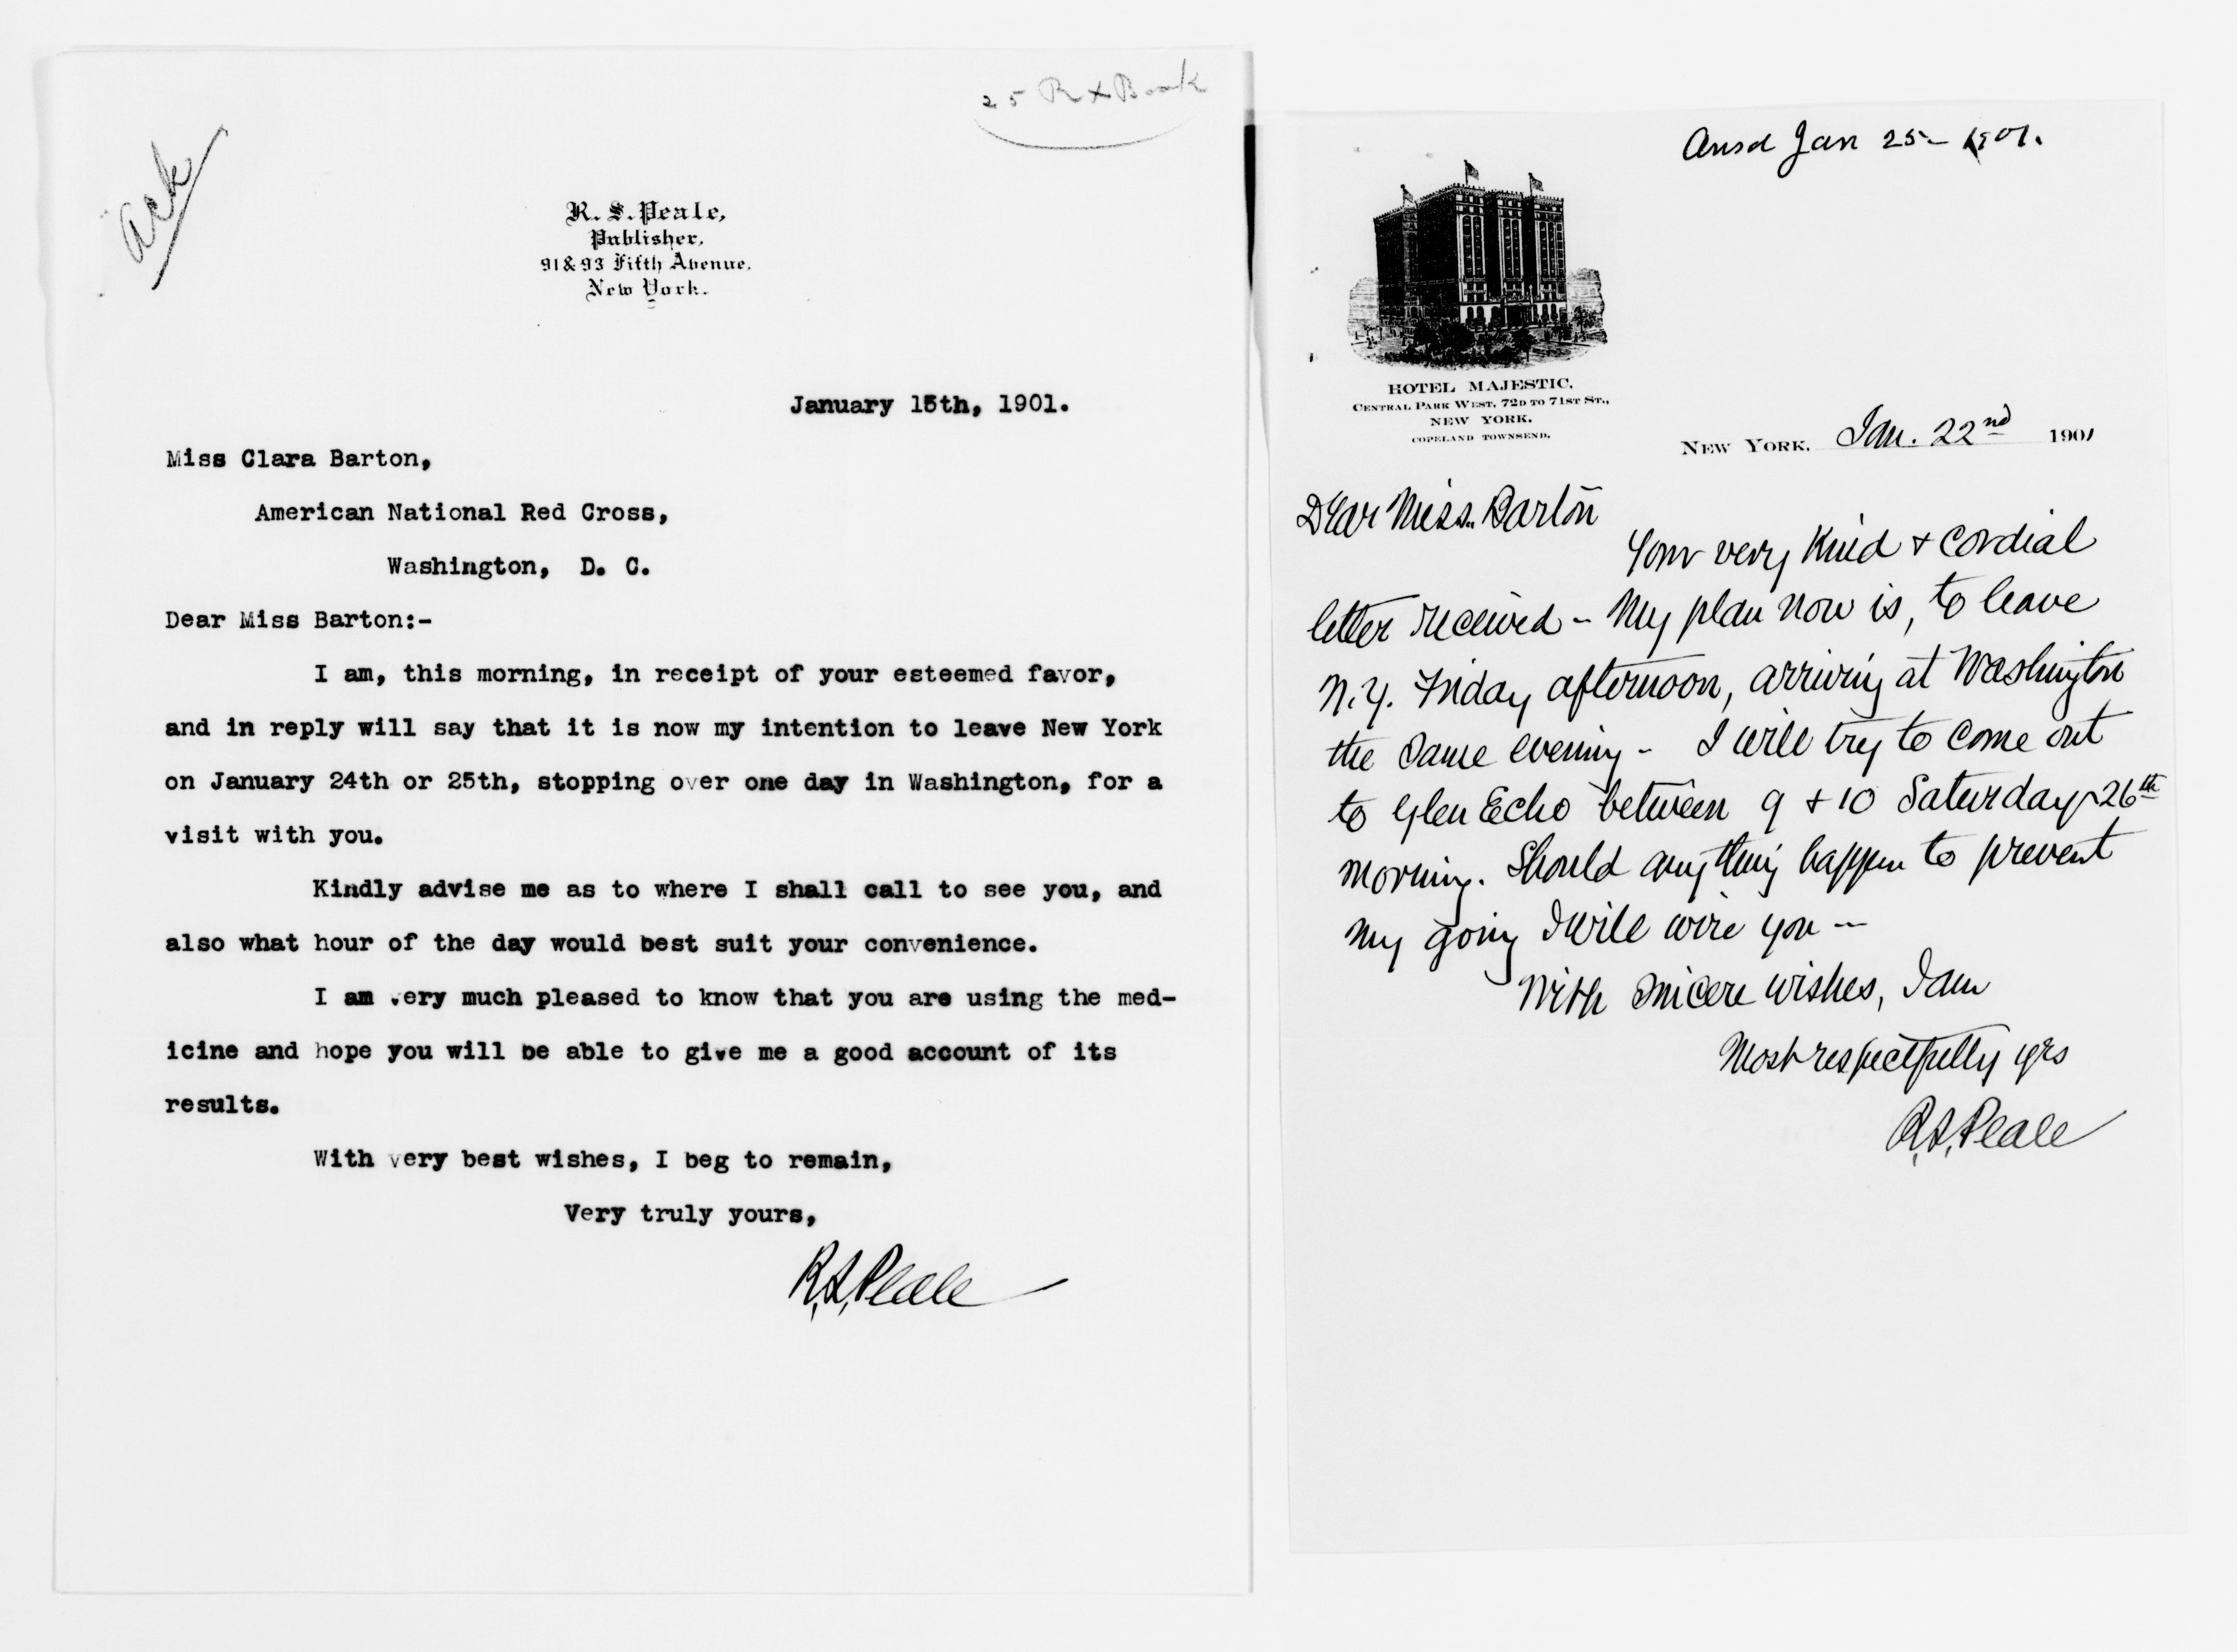 25 R + Book
Ack
R. S. Peale,
Publisher,
91 & 93 Fifth Avenue,
New York.
January 15th, 1901.
Miss Clara Barton,
American National Red Cross,
Washington, D. C.
Dear Miss Barton:-
I am, this morning, in receipt of your esteemed favor,
and in reply will say that it is now my intention to leave New York
on January 24th or 25th, stopping over one day in Washington, for a
visit with you.
Kindly advise me as to where I shall call to see you, and
also what hour of the day would best suit your convenience.
I am very much pleased to know that you are using the med-
icine and hope you will be able to give me a good account of its
results.
With very best wishes, I beg to remain,
Very truly yours,
R. S. Peale
Ansd Jan 25- 1901.
HOTEL MAJESTIC,
CENTRAL PARK WEST, 72D TO 71ST ST.,
NEW YORK.
COPELAND TOWNSEND.
NEW YORK, Jan. 22nd 1901
Dear Miss. Barton
Your very Kind + cordial
letter received - My plan now is, to leave
N.Y. Friday afternoon, arriving at Washington
the same evening - I will try to come out
to Glen Echo between 9 + 10 Saturday - 26th
morning. Should anything happen to prevent
my going I will wire you --
With sincere wishes, I am
Most respectfully yrs
R. S. Peale